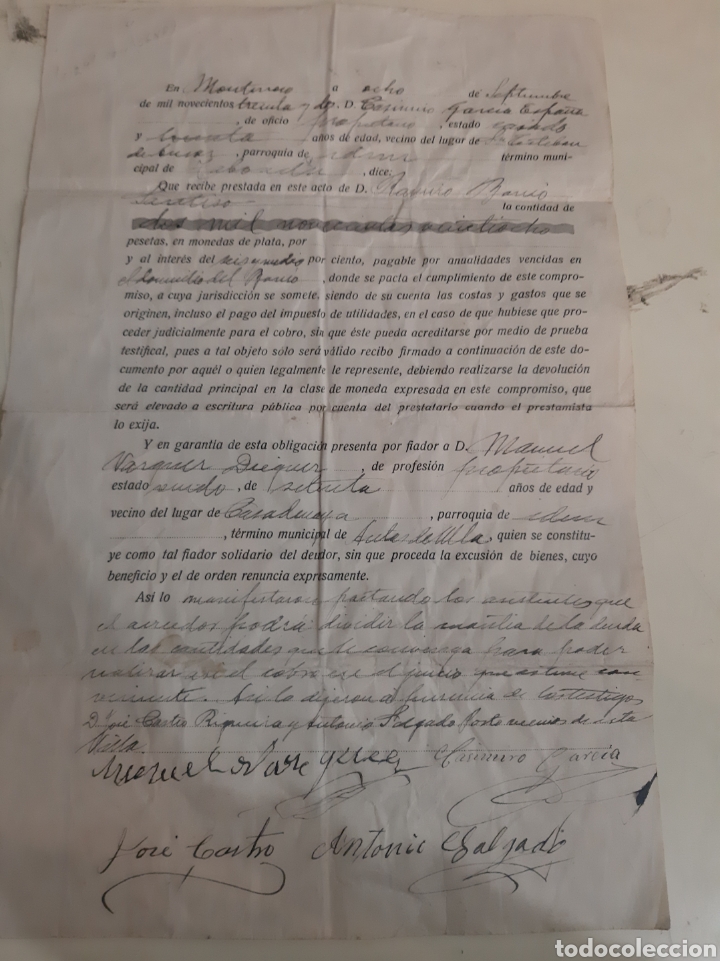 En Monterroso a ocho de Septiembre
de mil novecientos treinta y dos, D. Casimiro García España
, de oficio propietario, estado casado
y treinta años de edad, vecino del lugar de
de , parroquia de idem término muni-
cipal de Taboada, dice:
Que recibe prestada en este acto de D. Ramiro Barrio
la contidad de
dos mil novecientas veintiocho
pesetas, en monedas de plata, por
y al interés del seis y medio por ciento, pagable por anualidades vencidas en
el domicilio del Barrio, donde se pacta el cumplimiento de este compro-
miso, a cuya jurisdicción se somete, siendo de su cuenta las costas y gastos que se
originen, incluso el pago del impuesto de utilidades, en el caso de que hubiese que pro-
ceder judicialmente para el cobro, sin que éste pueda acreditarse por medio de prueba
testifical, pues a tal objeto sólo será válido recibo firmado a continuación de este do-
cumento por aquél o quien legalmente le represente, debiendo realizarse la devolución
de la cantidad principal en la clase de moneda expresada en este compromiso, que
será elevado a escritura pública por cuenta del prestatario cuando el prestamista
lo exija.
Y en garantia de esta obligación presenta por fiador a D. Manuel
Vazquez Dieguez, de profesión propietario
estado viudo, de setenta años de edad y
vecino del lugar de , parroquia de idem
, término municipal de Antas de Ulla, quien se constitu-
ye como tal fiador solidario del deudor, sin que proceda la excusión de bienes, cuyo
beneficio y el de orden renuncia expresamente.
Así lo manifestaron pactando los que
el acreedor podrá dividir la cuantia de la deuda
en las cantidades que le convenga para poder
realizar así el cobro en el juicio que estime con
veniente. Asi lo dijeron a presencia de los testigos
D. José Castro y Antonio Salgado vecinos de esta
Villa.
Manuel Vazquez Casimiro García
José Castro Antonio Salgado
todocoleccion